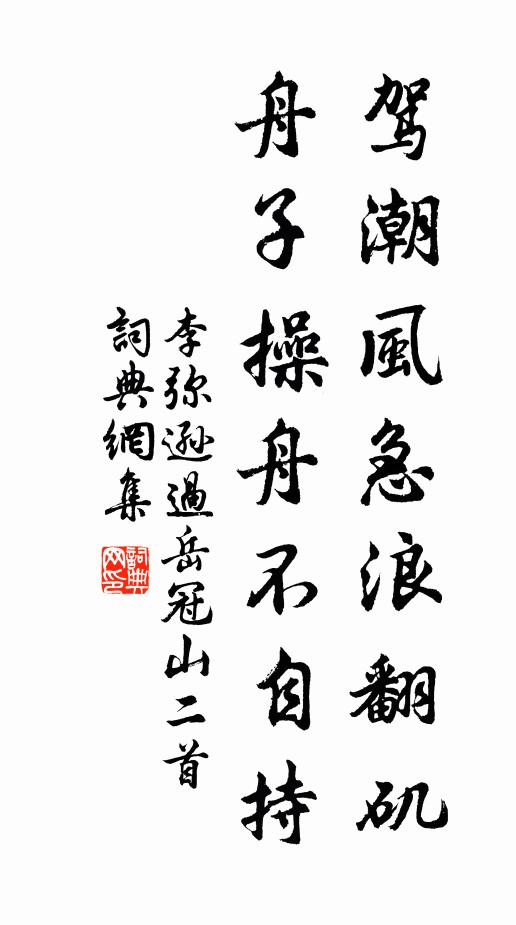 驾潮風急浪翻矶
舟子操舟不自持
李弥遜過岳冠山二首
詞典網集
詞典網印